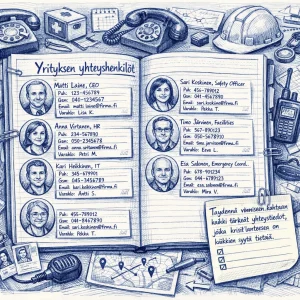 Yrityksen yhteyshenkilöt
Matti Laine, CEO
Puh: 123-456789
Gsm: 040-1234567
Email: matti.laine@firma.fi
Varahlö: Liisa K.
Anna Virtanen, HR
Puh: 234-567890
Gsm: 050-2345678
Email: anna.virtanen@firma.fi
Varahlö: Petri M.
Kari Heikkinen, IT
Puh: 345-678901
Gsm: 045-3456789
Email: kari.heikkinen@firma.fi
Varahlö: Antti S.
Puh: 456-789012
Gsm: 044-8467890
Email:
Varahlö: Pekka T.
Sari Koskinen, Safety Officer
Puh: 456-789012
Gsm: 041-4567890
Email: sari.koskinen@firma.fi
Varahlö: Pekka T.
Timo Järvinen, Facilities
Puh: 567-890123
Gsm: 050-5678910
Email: timo.jarvinen@firma.fi
Varahlö: Eeva L.
Esa Salonen, Emergency Coord.
Puh: 678-901234
Gsm: 044-6789123
Email: esa.salonen@firma.fi
Varahlö: Mira V.
Täydennä viimeiseen kohtaan
kaikki tärkeät yhteystiedot,
joita kriisitilanteessa on
kaikkien syytä tietää.